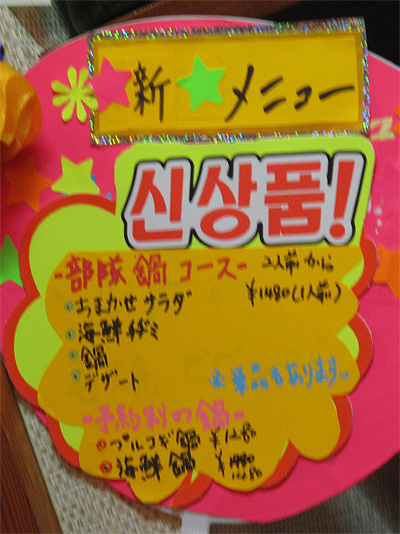 新メニュー
신상품!
-部隊鍋コース- 2人前から
おまかせサラダ ¥1480(1人前)
海鮮チヂミ
鍋
デザート
※単品もあります
-予約制の鍋-
プルコギ鍋
海鮮鍋